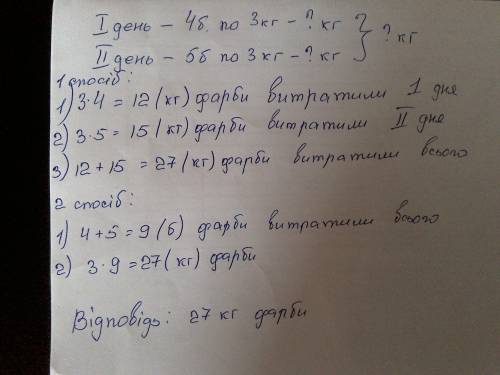 I день – 4б. по 3кг – ? кг
II день – 5б по 3 кг – ? кг } ? кг
1 спосіб:
1) 3·4 = 12 (кг) фарби витратили 1 дня
2) 3·5 = 15 (кг) фарби витратили II дня
3) 12 + 15 = 27 (кг) фарби витратили всього
2 спосіб:
1) 4+5 = 9 (б) фарби витратили всього
2) 3·9 = 27 (кг) фарби
Відповідь: 27 кг фарби